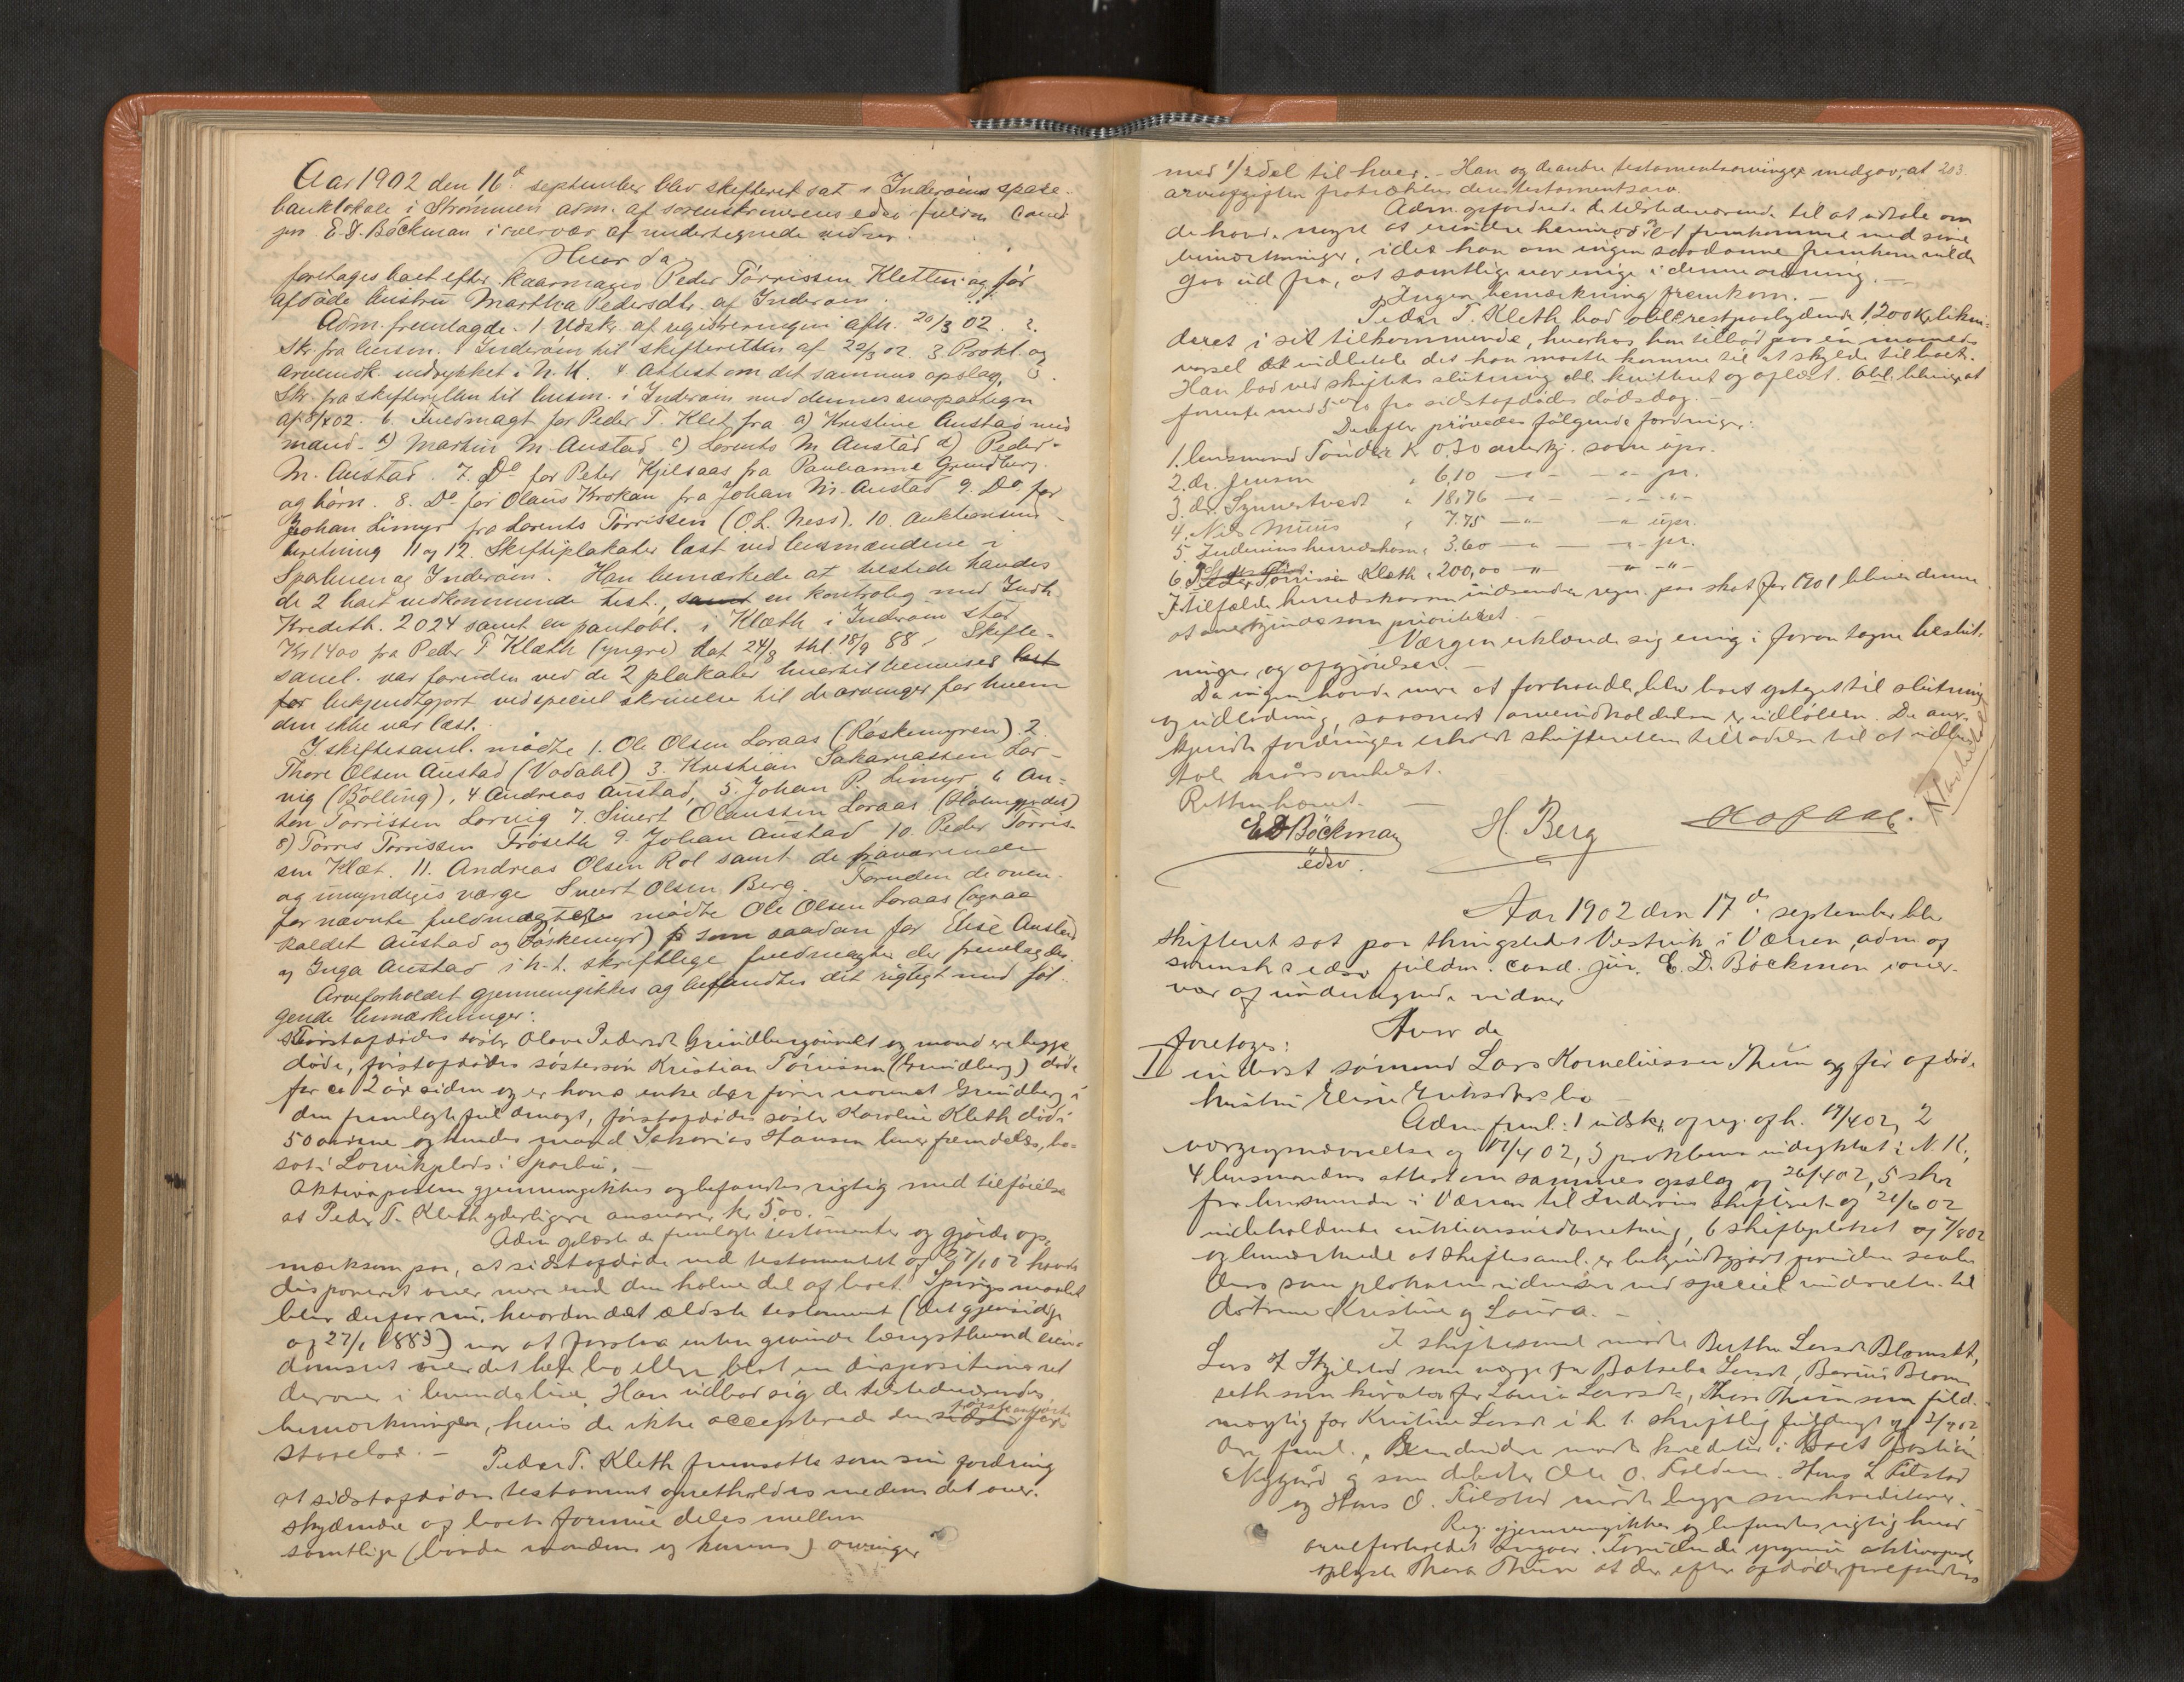 Aar 1902 den 16d september blev skifteret sat i Inderøens spare-
banklokale i Strømmen adm. af sorenskriverens edsv fuldm cand
jur. E. D. Böckman i overvær af undertegnede vidner.
Hvor da
foretages boet efter kaarmand Peder Tørrissen Kletten og før
afdøde hustru Martha Pedersdtr. af Inderøen.
Adm. fremlagde. 1 Udskr. af registreringen afh. 20/3 02. 2.
Skr. fra lensm. i Inderøen til skifteretten af 22/3 02. 3 Prokl. og
arveindk. indrykket i N. K. 4 Attest om det sammes opslag, 5.
Skr. fra skifteretten til lensm. i Inderøen med dennes svarpaategn
af 8/4 02. 6. Fuldmagt for Peder T. Klet fra a) Kristine Austad med
mand. b) Martin M. Austad c) Lorents M. Austad d) Peder
M. Austad. 7. Do for Peter Kjelsaas fra Paulianne Grundberg
og børn. 8. Do for Olaus Krokan fra Johan M. Austad 9. Do. for
Johan Limyr fra Lorents Tørrissen (O. L. Ness). 10. Auktionsind-
beretning 11 og 12. Skifteplakater læst ved lensmændene i
Sparbuen og Inderøen. Han bemærkede at tilstede havdes
de 2 boet vedkommende test., samt en kontrabog med Indh.
Kreditk. 2024 samt en pantobl. i Klæth i Inderøen stor
Kr 1400 fra Peder T Klæth (yngre) dat 24/8 thl. 18/9 88. Skifte-
saml. var foruden ved de 2 plakater hvortil henvises læst
for bekjendtgjort ved speciel skrivelse til de arvinger for hvem
den ikke var læst.
I skiftesaml. mødte 1. Ole Olsen Loraas (Røskemyren). 2.
Thore Olsen Austad (Vadahl) 3. Kristian Sakariassen Lor-
vig (Bølling), 4 Andreas Austad, 5. Johan P. Limyr 6 An-
ton Tørrissen Lorvig 7. Sivert Olaussen Loraas
8) Tørris Tørrissen Frøseth 9. Johan Austad 10. Peder Tørris-
sen Klæt. 11. Andreas Olsen Rol samt de fraværende
og umyndiges værge Sivert Olsen Berg. Foruden de oven-
for nævnte fuldmægtige mødte Ole Olsen Loraas (ogsaa
kaldet Austad og Røskemyr) som saadan for Elise Austad
og Inga Austad i h. t. skriftlige fuldmagter der fremlagdes.
Arveforholdet gjennemgikkes og befandtes det rigtigt med føl-
gende bemærkninger:
Førstafdødes søster Olava Pedersdt Grindberg og mand er begge
døde, førstafdødes søstersøn Kristian Tørrissen (Grindberg) døde
for ca 2 aar siden og er hans enke den forin navnet Grindberg i
den fremlagte fuldmagt, førstafdødes søster Karoline Kleth døde i
50 aarene og hendes mand Sakarias Hansen lever fremdeles, bo-
sat i Lorvikplads i Sparbu. —
Aktivaposten gjennemgikkes og befandtes rigtig med tilføielse
at Peder T. Kleth yderligere ansvarer kr 5,00.
Adm oplæste de fremlagte testamenter og gjorde op-
mærksom paa, at sidstafdøde ved testamentet af 27/1 02 havde
disponeret over mere end den halve del af boet. Spørgsmaalet
blev derfor nu, hvordan det ældste testament (det gjensidige
af 27/1 1883) var at forstaa enten givende længstlevende eien-
domsret over det hele bo eller blot en dispositionsret
derover i levende live. Han udbad sig de tilstedeværendes
bemærkninger, hvis de ikke accepterede den førstanførte
staaelse. —
Peder T. Kleth fremsatte som sin fordring
at sidstafdødes testament opretholdes medens det over-
skydende af boets formue deles mellem
samtlige (baade mandens og konens) arvinger
med 1/2 del til hver. — Han og de andre testamentsarvinger medgav, at 203
arveafgiften fratrækkes deres testamentsarv.
Adm. opfordrede de tilstedeværende til at udtale om
de havde noget at erindre herimod at fremkomme med sine
bemærkninger, idet han om ingen saadanne fremkom vilde
gaa ud fra, at samtlige var enige i denne ordning. —
Ingen bemærkning fremkom. —
Peder T. Kleth bad obl. restpaalydende 1,200 Kr. likvi-
deret i sit tilkommende, hvorhos han tilbød paa én maaneds
varsel at indbetale det han maatte komme til at skylde til boet.
Han bad ved skiftets slutning obl. kvitteret og aflæst. Obl. bliver at
forrente med 5 % fra sidstafdødes dødsdag. —
Derefter prøvedes følgende fordringer:
1. lensmand Tønder Kr 0,30 anerkj. som upr.
2. dr. Jensen " 6,10 — " — — " — pr.
3. dr. Synnestvedt " 18,76 — " — — " — " —
4. Nils Muus " 7.75 — " — — " — upr.
5. Inderøens herredskom. " 3.60 — " — — " — pr.
6 Peder Tørrissen Kleth " 200,00 — " — — " — " —
I tilfælde herredskassen indsender regn. paa skat for 1901 bliver denne
at anerkjende som prioriteret. —
Værgen erklærede sig enig i foran tagne beslut-
ninger og opgjørelser. —
Da ingen havde mere at forhandle, blev boet optaget til slutning
og udlodning, saasnart arveindkaldelsen er udløben. De aner-
kjendte fordringer erholdt skifteretten tilladelse til at udbe-
tale naarsomhelst.
Retten hævet. —
E D Böckman H. Berg
edsv.
Aar 1902 den 17de september blev
skifteret sat paa thingstedet Vestvik i Værran, adm af
sorenskr.s edsv fuldm. cand. jur. E. D. Böckman i over-
vær af undertegnede vidner
Hvor da
foretages:
I inderst sømand Lars Korneliussen Thun og før afdøde
hustru Elisie Eriksdtrs bo —
Adm. freml.: 1 udskr af reg. afh. 19/4 02, 2
værgeopnævnelse af 19/4 02, 3 proklama indrykket i N. K.,
4 lensmandens attest om sammes opslag af 26/4 02, 5 skr
fra lensmanden i Værran til Inderøens skifteret af 21/6 02
indeholdende auktionsindberetning, 6 skifteplakat af 7/8 02
og bemærkede at skiftesaml. er bekjendtgjort foruden saale-
des som plakaten udviser ved speciel underretn. til
døtrene Kristine og Laura. —
I skiftesaml mødte Berthe Larsdt Blomseth,
Lars J. Stjilstad som værge for Batseba Larsdt, Berius Blom-
seth som kurator for Laura Larsdtr, Thora Thun som fuld-
mægtig for Kristine Larsdt i h. t. skriftlig fuldmagt af 3/9 02
der freml. Bemeldte mødte kreditor i boet Bastian
Nygård og som debitor Ole O. Foldem. Hans L Tilstad
og Hans O. Tilstad mødte begge som kreditorer. —
Reg. gjennemgikkes og befandtes rigtig hvad
arveforholdet angaar. Foruden de opgivne aktivaposter
oplyste Thora Thun at der efter afdøde forefandtes